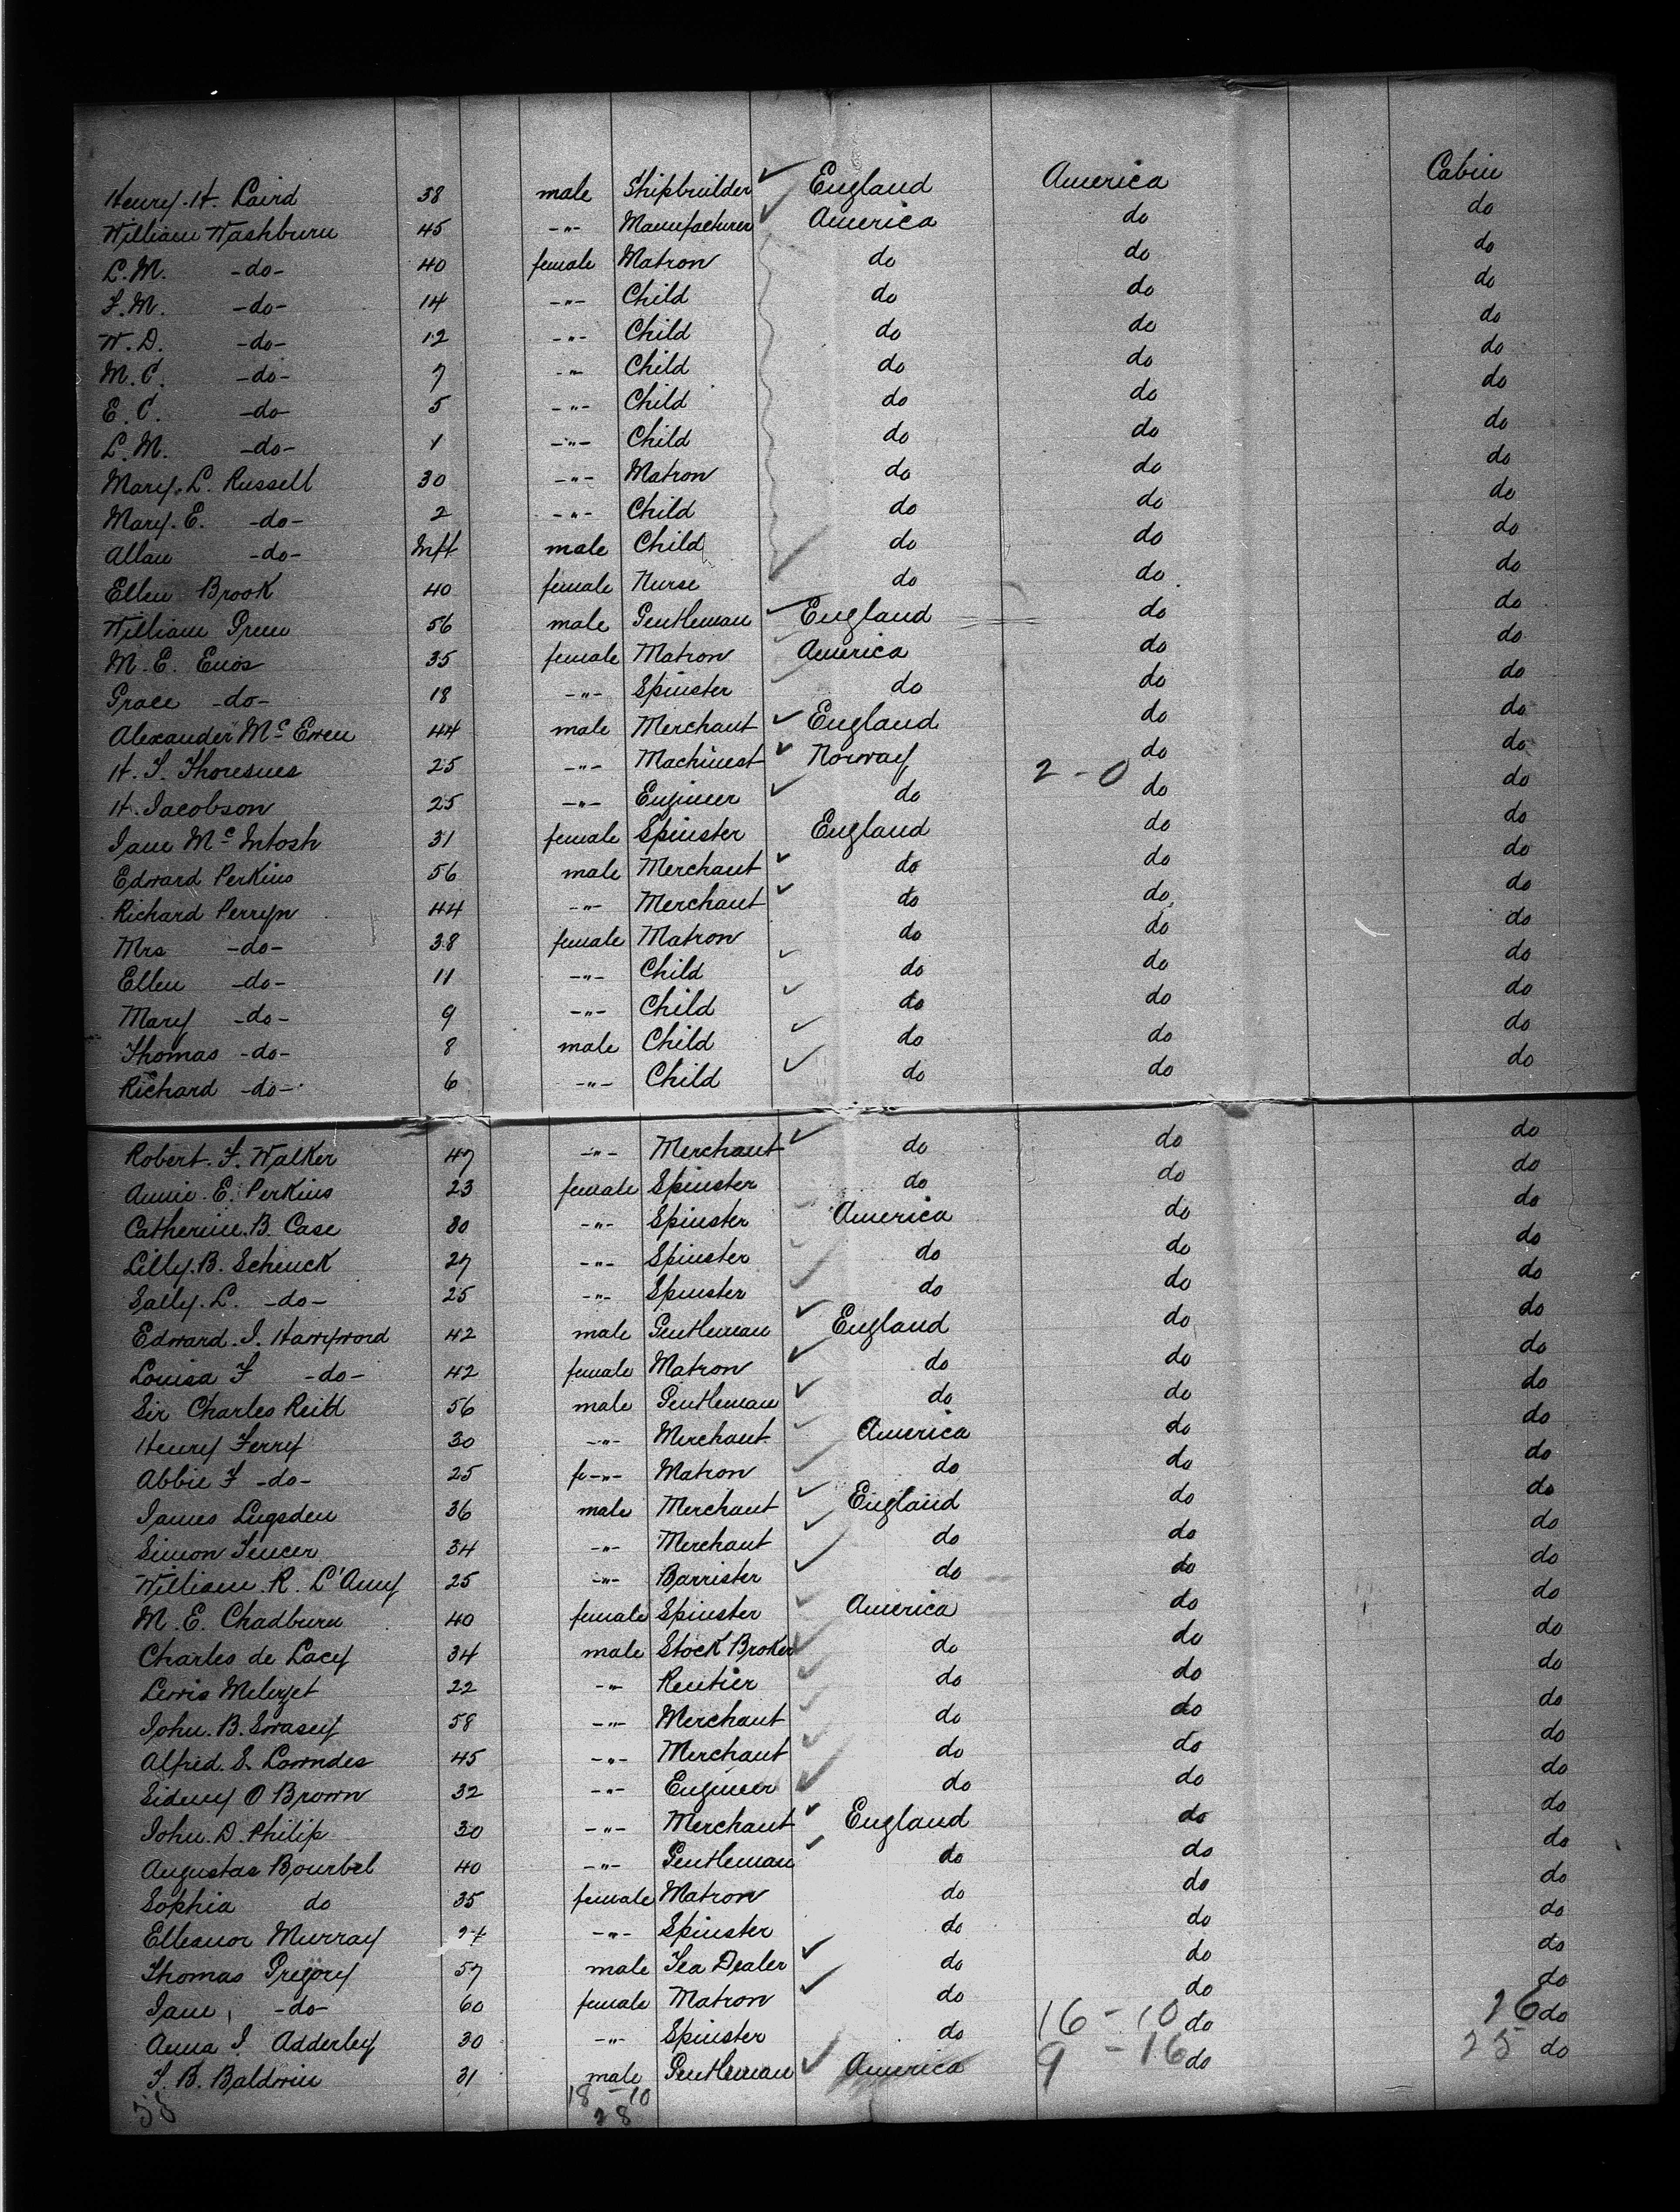 Henry. H. Laird 38 male Shipbuilder England America Cabin
William Washburn 45 -"- Manufacturer America do do
L. M. -do- 40 female Matron do do do
F. M. -do- 14 -"- Child do do do
W. D. -do- 12 -"- Child do do do
M. C. -do- 7 -"- Child do do do
E. C. -do- 5 -"- Child do do do
L. M. -do- 1 -"- Child do do do
Mary. L. Russell 30 -"- Matron do do do
Mary. E. -do- 2 -"- Child do do do
Allan -do- Inft male Child do do do
Ellen Brook 40 female Nurse do do do
William 56 male Gentleman England do do
M. E. Enos 35 female Matron America do do
Grace -do- 18 -"- Spinster do do do
Alexander McEwen 44 male Merchant England do do
H. T. 25 -"- Machinest Norway do do
2 - 0
H. Jacobson 25 -"- Engineer do do do
Jane McIntosh 31 female Spinster England do do
Edward Perkins 56 male Merchant do do do
Richard Perryn 44 -"- Merchant do do do
Mrs -do- 38 female Matron do do do
Ellen -do- 11 -"- Child do do do
Mary -do- 9 -"- Child do do do
Thomas -do- 8 male Child do do do
Richard -do- 6 -"- Child do do do
Robert. F. Walker 47 -"- Merchant do do do
Annie. E. Perkins 23 female Spinster do do do
Catherine. B. Case 30 -"- Spinster America do do
Lilly. B. Schenck 27 -"- Spinster do do do
Sally. L. -do- 25 -"- Spinster do do do
Edward. J. 42 male Gentleman England do do
Louisa F -do- 42 female Matron do do do
Sir Charles Reid 56 male Gentleman do do do
Henry Ferry 30 -"- Merchant America do do
Abbie F -do- 25 fe-"- Matron do do do
James Lugsden 36 male Merchant England do do
Simon 34 -"- Merchant do do do
William. R. L'Amy 25 -"- Barrister do do do
M. E. Chadburn 40 female Spinster America do do
Charles de Lacy 34 male Stock Broker do do do
Lewis 22 -"- Rentier do do do
John. B. Swasey 58 -"- Merchant do do do
Alfred. S. Lowndes 45 -"- Merchant do do do
Sidney O Brown 32 -"- Engineer do do do
John. D. Philip 30 -"- Merchant England do do
Augustas Bourbel 40 -"- Gentleman do do do
Sophia do 35 female Matron do do do
Elleanor Murray -"- Spinster do do do
Thomas Gregory 57 male Tea Dealer do do do
Jane -do- 60 female Matron do do do
Anna J. Adderley 30 -"- Spinster do 16 - 10 do 26 do
T. B. Baldwin 31 male Gentleman America 9 - 16 do 25 do
18 - 10
28